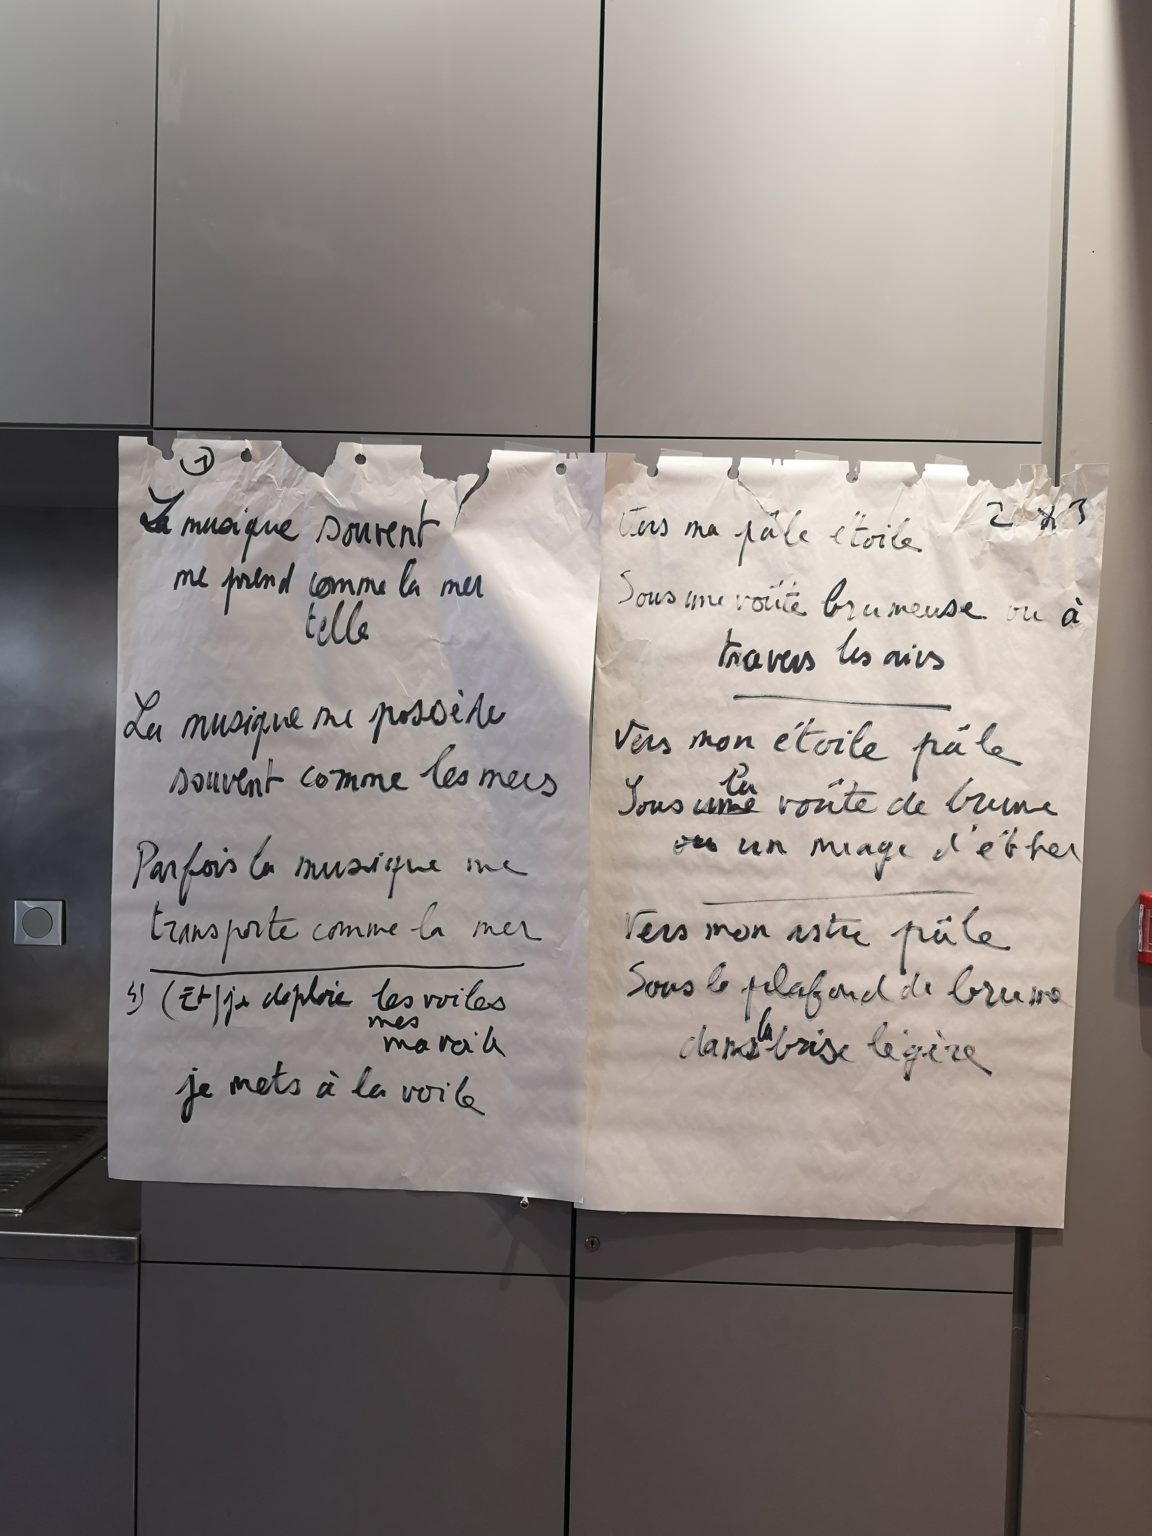 1
La musique souvent
me prend comme la mer
telle
La musique me possède
souvent comme les mers
Parfois la musique me
transporte comme la mer
4) (Et) je déploie les voiles
mes
ma voile
je mets à la voile
2 x 3
Vers ma pâle étoile
Sous une voûte brumeuse ou à
travers les airs
Vers mon étoile pâle
la
Sous une voûte de brume
ou un nuage d'éther
Vers mon astre pâle
Sous le plafond de brume
la
dans brise légère